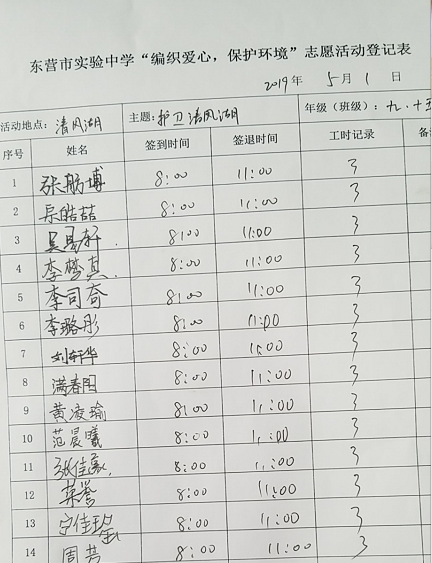 东营市实验中学“编织爱心，保护环境”志愿活动登记表
2019年 5月 1 日
活动地点：清风湖 主题：护卫清风湖 年级（班级）：九.十五
序号 姓名 签到时间 签退时间 工时记录 备
1 张舫博 8:00 11:00 3
2 皓喆 8:00 11:00 3
3 吴易轩 8:00 11:00 3
4 李梦真 8:00 11:00 3
5 李司奇 8:00 11:00 3
6 李璐彤 8:00 11:00 3
7 刘轩华 8:00 11:00 3
8 满春国 8:00 11:00 3
9 黄凌瑜 8:00 11:00 3
10 范晨曦 8:00 11:00 3
11 张佳 8:00 11:00 3
12 8:00 11:00 3
13 宁佳 8:00 11:00 3
14 周芳 8:00 11:00 3